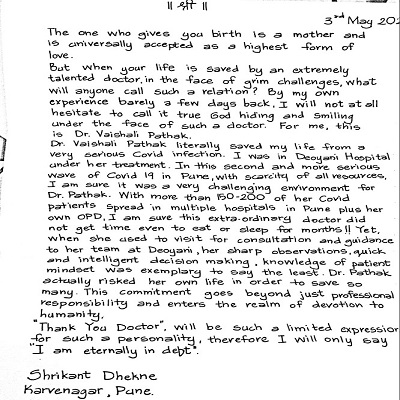 ॥ श्री ॥
3rd May 202
The one who gives you birth is a mother and
is universally accepted as a highest form of
love.
But when your life is saved by an extremely
talented doctor, in the face of grim challenges, what
will anyone call such a relation? By my own
experience barely a few days back, I will not at all
hesitate to call it true God hiding and smiling
under the face of such a doctor. For me, this
is Dr. Vaishali Pathak.
Dr. Vaishali Pathak literally saved my life from a
very serious Covid infection. I was in Deoyani Hospital
under her treatment. In this second and more serious
wave of Covid 19 in Pune, with scarcity of all resources,
I am sure it was a very challenging environment for
Dr. Pathak. With more than 150-200 of her Covid
patients spread in multiple hospitals in Pune plus her
own OPD, I am sure this extra-ordinary doctor did
not get time even to eat or sleep for months!! Yet,
when she used to visit for consultation and guidance
to her team at Deoyani, her sharp observations, quick
and intelligent decision making, knowledge of patient
mindset was exemplary to say the least. Dr. Pathak
actually risked her own life in order to save so
many. This commitment goes beyond just professional
responsibility and enters the realm of devotion to
humanity.
"Thank You Doctor", will be such a limited expression
for such a personality, therefore I will only say
"I am eternally in debt".
Shrikant Dhekne
Karvenagar, Pune.